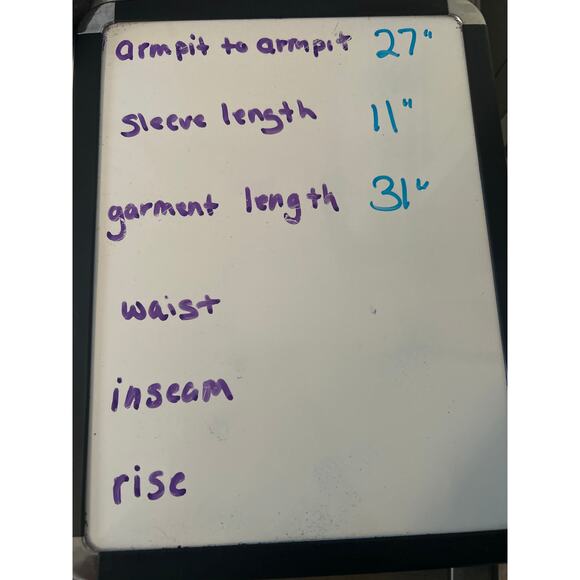 armpit to armpit 27"
sleeve length 11"
garment length 31"
waist
inseam
rise